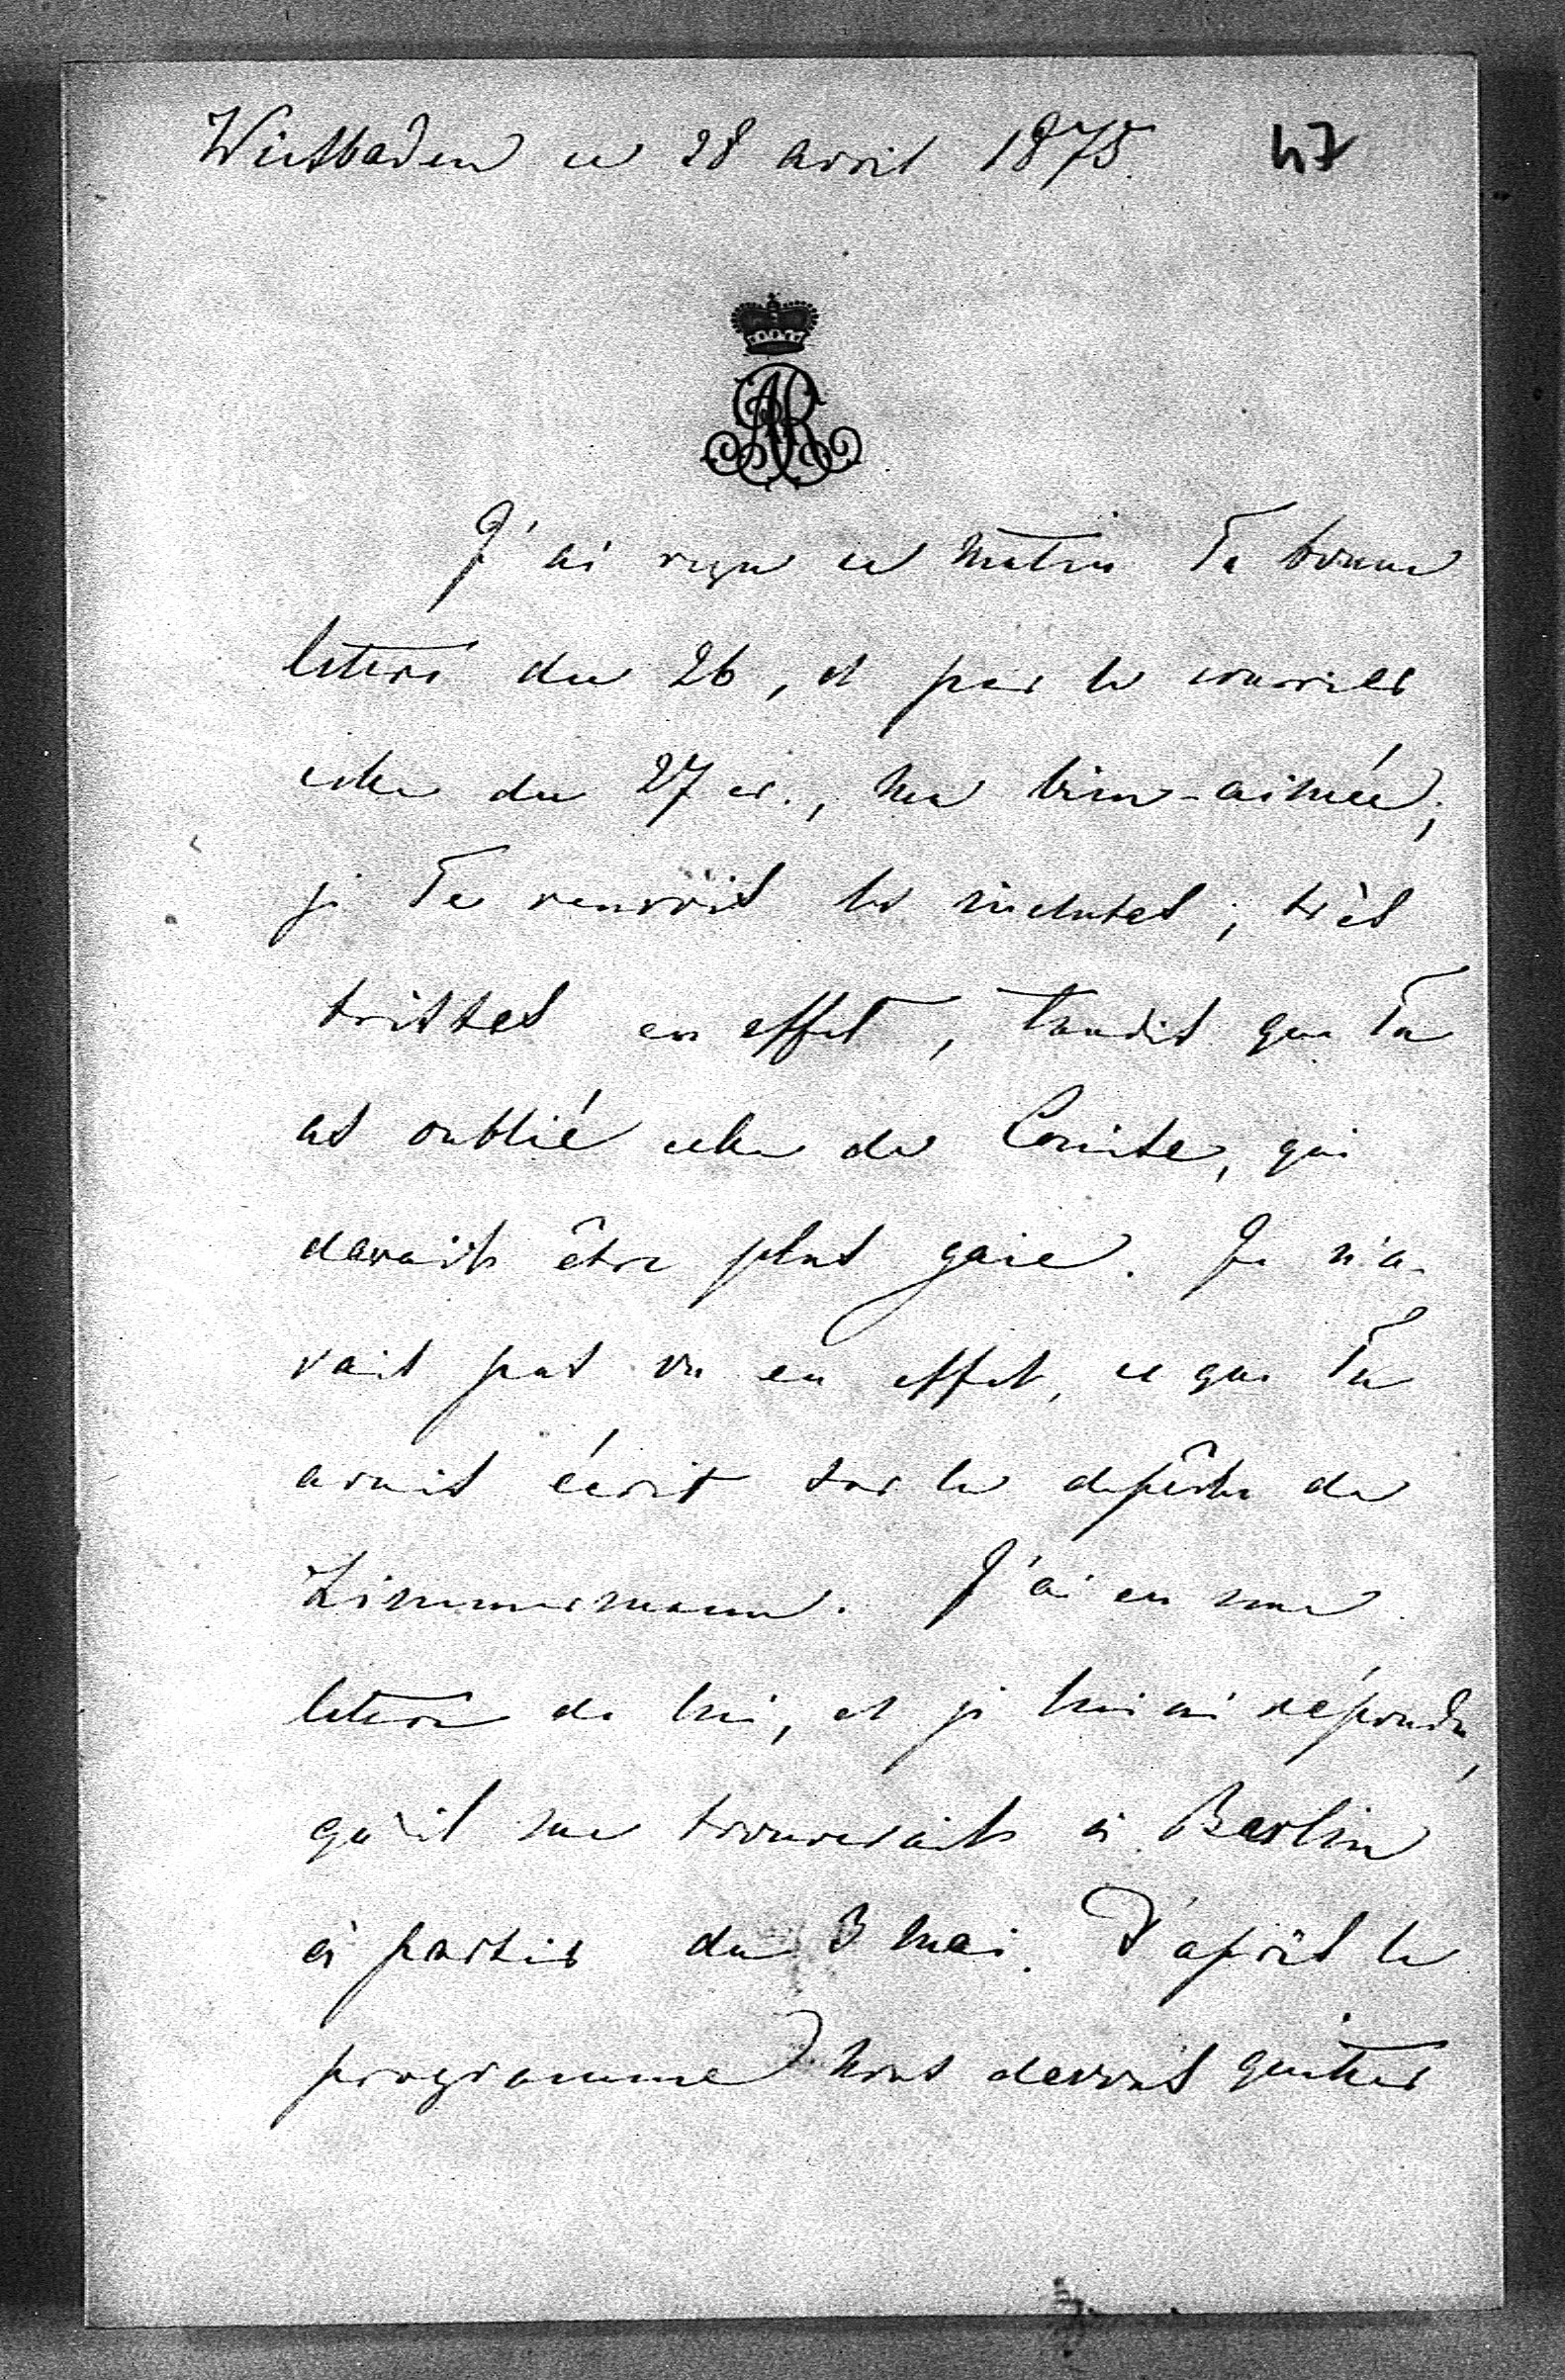 Wiesbaden ce 28 avril 1875. 47
AR
J'ai reçu ce matin Ta bonne
lettre du 26, et par le courrier
celle du 27 cr., ma bien-aimée;
je Te renvois les incluses, très
tristes en effet, tandis que Tu
as oublié celle de Louise, qui
devait être plus gaie. Je n'a-
vais pas vu en effet, ce que Tu
avais écrit sur la depêche de
Zimmermann. J'ai eu une
lettre de lui, et je lui ai répondu,
qu'il me trouverait à Berlin
à partir du 3 mai. D'après le
programme nous devons quitter